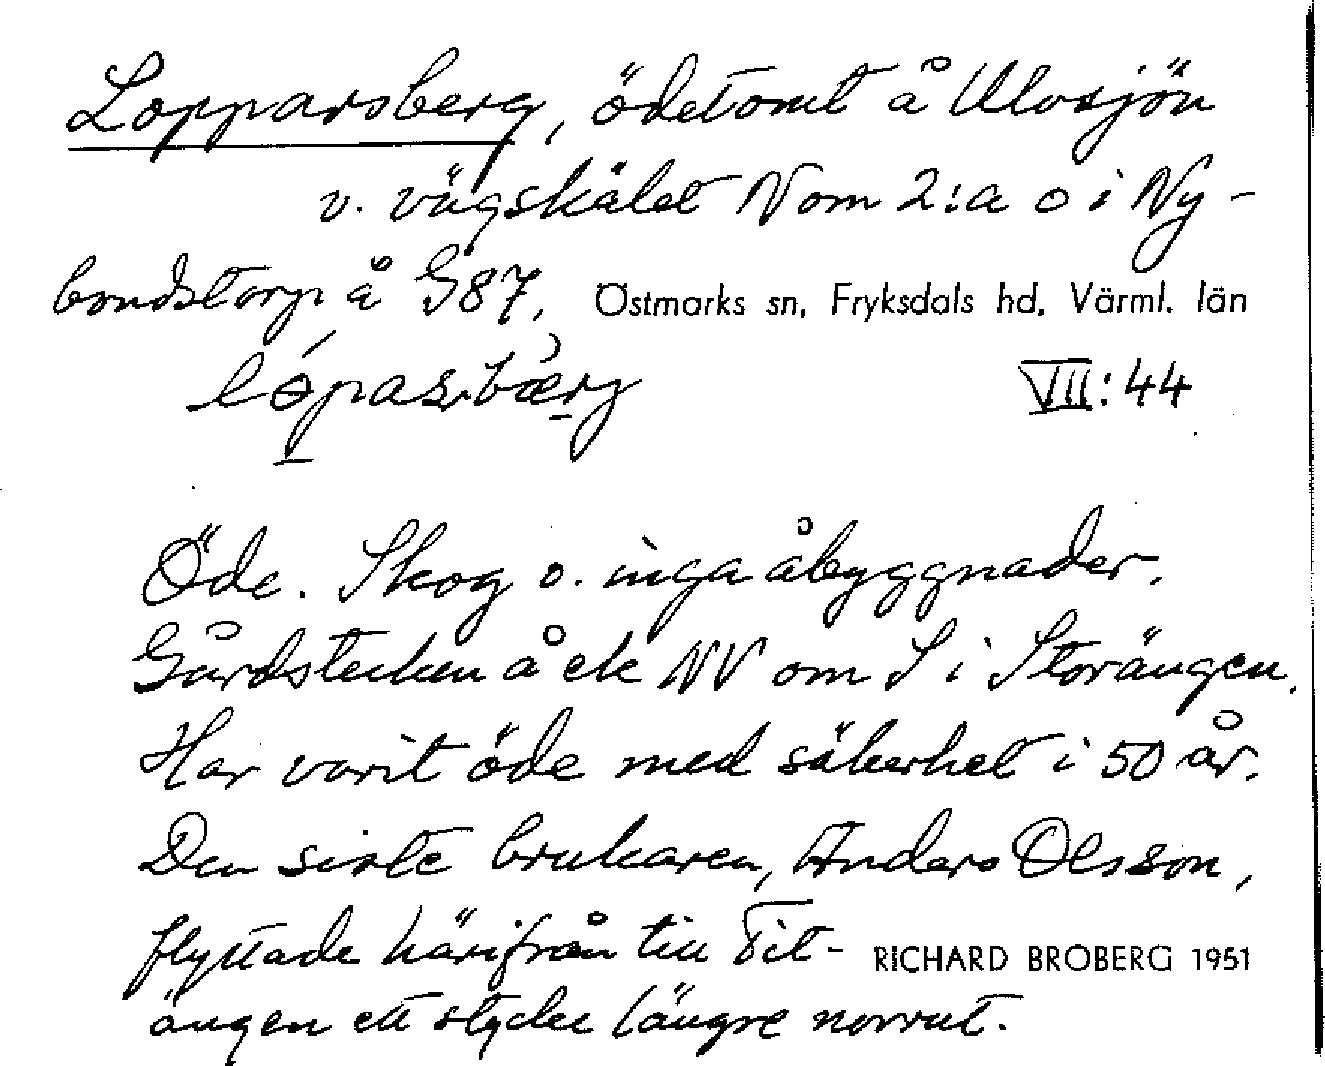 Lopparsberg, ödetomt å Ulvsjön
v. vägskälet N om 2:a o i Ny-
bondstorp å G87, Östmarks sn, Fryksdals hd, Värml. län
VII:44
Öde. Skog o. inga åbyggnader.
Gårdstecken å ek NV om S i Storängen.
Har varit öde med säkerhet i 50 år.
Den siste brukaren, Anders Olsson,
flyttade härifrån till Tit- RICHARD BROBERG 1951
ängen ett stycke längre norrut.